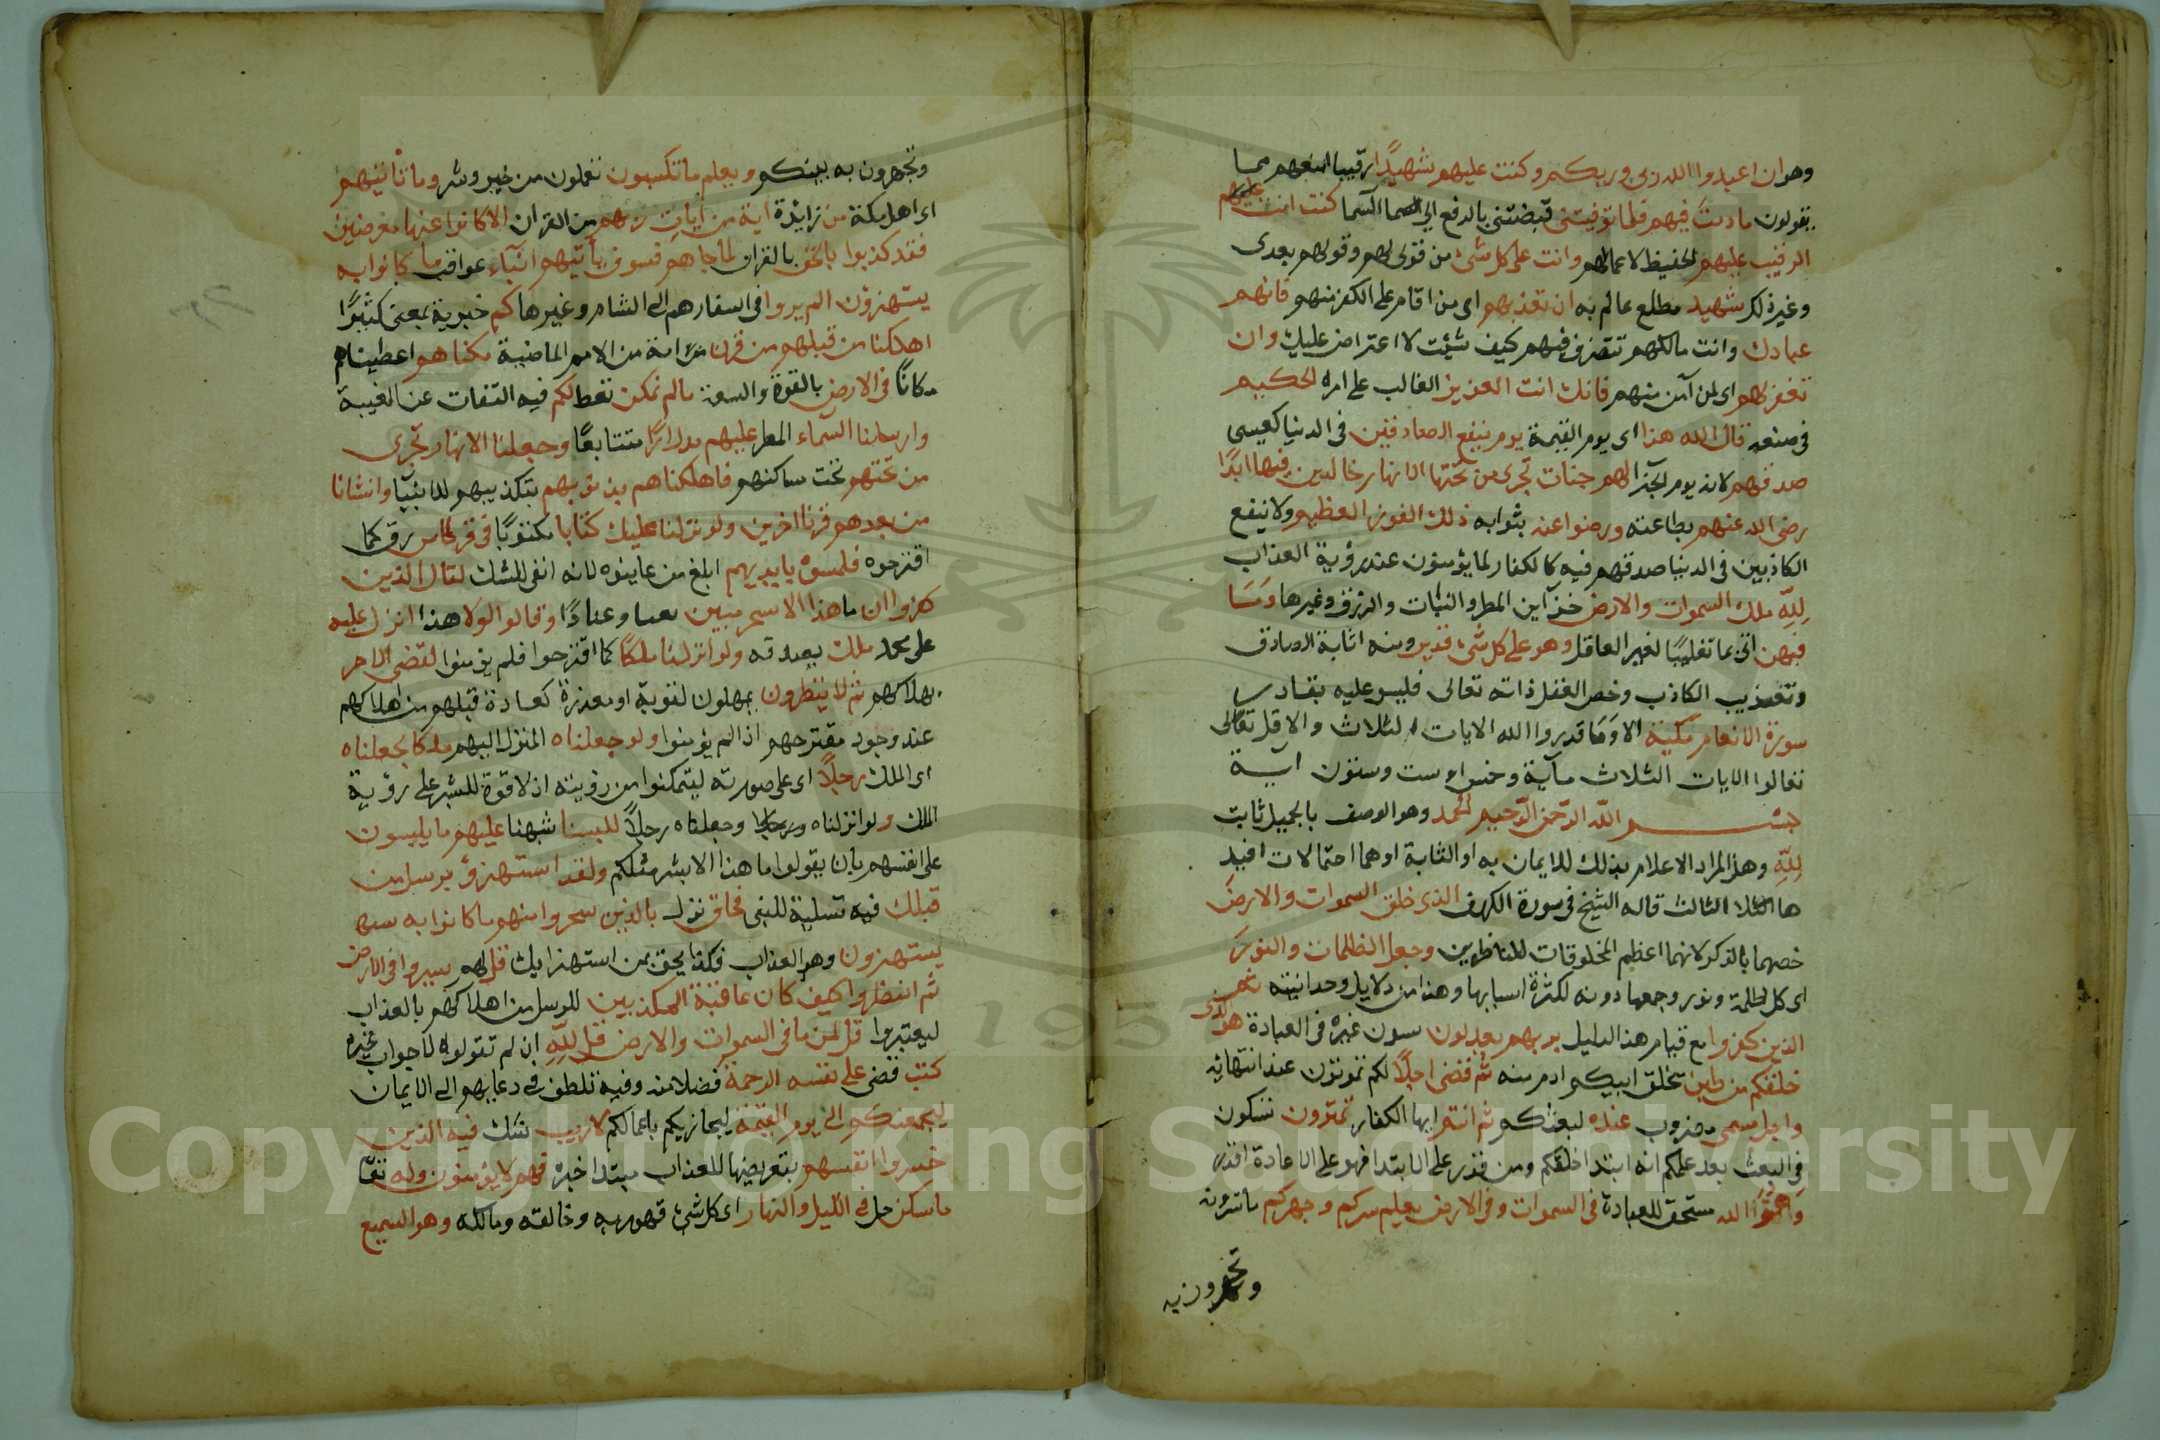 وهو ان اعبدوا الله ربى وربكم وكنت عليهم شهيدًا رقيبا امنعهم مما
يقولون ما دمت فيهم فلما توفيتنى قبضتنى بالرفع الى السما كنت انت
عليهم
الرقيب عليهم الحفيظ لاعمالهم وانت على كل شى من قولى لهم وقولهم بعدى
وغير ذلك شهيد مطلع عالم به ان تعذبهم اى من اقام على الكفر منهم فانهم
عبادك وانت مالكهم تتصرف فيهم كيف شئت لا اعتراض عليك وان
تغفر لهم اى لمن آمن منهم فانك انت العزيز الغالب على امره الحكيم
فى صنعه قال الله هذا اى يوم القيمة يوم ينفع الصادقين فى الدنيا كعيسى
صدقهم لانه يوم الجزا لهم جنات تجرى من تحتها الانهار خالدين فيها ابدًا
رضى الله عنهم بطاعته ورضوا عنه بثوابه ذلك الفوز العظيم ولا ينفع
الكاذبين فى الدنيا صدقهم فيه كالكفار لما يؤمنون عند رؤية العذاب
لله ملك السموات والارض خزاين المطر والنبات والرزق وغيرها وَمَا
فيهن اتى بما تغليبًا لغير العاقل وهو على كل شى قدير ومنه اثابة الصادق
وتعذيب الكاذب وخص العقل ذاته تعالى فليس عليه بقادر
سورة الانعام مكية الا وَمَا قدروا الله الايات الثلاث والا قل تعالى
تعالوا الايات الثلاث مآية وخمس او ست وستون آية
بسم الله الرحمن الرحيم الحمد وهو الوصف بالجميل ثابت
لله وهل المراد الاعلام بذلك للايمان به او الثابة او هما احتمالات افيد
ها الثالث قاله الشيخ فى سورة الكهف الذى خلق السموات والارض
خصهما بالذكر لانهما اعظم المخلوقات للناظرين وجعل الظلمات والنور
اى كل ظلمة ونور وجمعها دونه لكثرة اسبابها وهذا من دلايل وحدانيته ثم
الذين كفروا مع قيام هذا الدليل بربهم يعدلون يسوون غيره فى العبادة هو الذى
خلقكم من طين بخلق ابيكم ادم منه ثم قضى اجلًا لكم تموتون عند انتهائه
واجل مسمى مضروب عنده لبعثكم ثم انتم ايها الكفار تمترون تشكون
فى البعث بعد علمكم انه ابتدا خلقكم ومن قدر على الابتدا فهو على الاعادة اقدر
وَهُوَ الله مستحق للعبادة فى السموات وفى الارض يعلم سركم وجهركم ما تسرون
وتجهرون به
وتجهرون به بينكم ويعلم ما تكسبون تعملون من خير وشر وما تاتيهم
اى اهل مكة من زايدة اية من آيات ربهم من القران الا كانوا عنها معرضين
فقد كذبوا بالحق بالقران لما جاهم فسوف يأتيهم انباء عواقب ما كانوا به
يستهزؤن الم يروا فى اسفارهم الى الشام وغيرها كم خبرية بمعنى كثيرًا
اهلكنا من قبلهم من قرن امة من الامم الماضية مكناهم اعطيناهم
مكانًا فى الارض بالقوة والسعة ما لم نمكن نعط لكم فيه التفات عن الغيبة
وارسلنا السماء المطر عليهم مدرارًا متتابعًا وجعلنا الانهار تجرى
من تحتهم تحت مساكنهم فاهلكناهم بذنوبهم بتكذيبهم للانبيآ وانشانا
من بعدهم قرنا اخرين ولو نزلنا عليك كتابا مكتوبًا فى قرطاس رق كما
اقترحوه فلمسوه بايديهم ابلغ من عاينوه لانه انفى للشك لقال الذين
كفروا ان ما هذا الا سحر مبين تعنتا وعنادًا وقالوا لولا هذا انزل عليه
على محمد ملك يصدقه ولو انزلنا ملكًا كما اقترحوا فلم يؤمنوا لقضى الامر
بهلاكهم ثم لا ينظرون يمهلون لتوبة او معذرة كعادة قبلهم من اهلاكهم
عند وجود مقترحهم اذا لم يؤمنوا ولو جعلناه المنزل اليهم ملكا لجعلناه
اى الملك رجلًا اى على صورته ليتمكنوا من رؤيته اذ لا قوة للبشر على رؤية
الملك ولو انزلناه وجعلناه رجلًا للبسنا شبهنا عليهم ما يلبسون
على انفسهم بان يقولوا ما هذا الا بشر مثلكم ولقد استهزؤ برسل من
قبلك فيه تسلية للنبى فحاق نزل بالذين سخروا منهم ما كانوا به
يستهزون وهو العذاب فكذا يحق بمن استهزا بك قل لهم سيروا فى الارض
ثم انظروا كيف كان عاقبة المكذبين للرسل من اهلاكهم بالعذاب
ليعتبروا قل لمن ما فى السموات والارض قل لله ان لم تقولوه لا جواب غيره
كتب قضى على نفسه الرحمة فضلا منه وفيه تلطف فى دعايهم الى الايمان
ليجمعنكم الى يوم القيمة ليجازيكم باعمالكم لا ريب شك فيه الذين
خسروا انفسهم بتعريضها للعذاب مبتدا خبره فهم لا يؤمنون وله تعا
ما سكن حل فى الليل والنهار اى كل شى فهو ربه وخالقه ومالكه وهو السميع
Copyright © King Saud University
1957